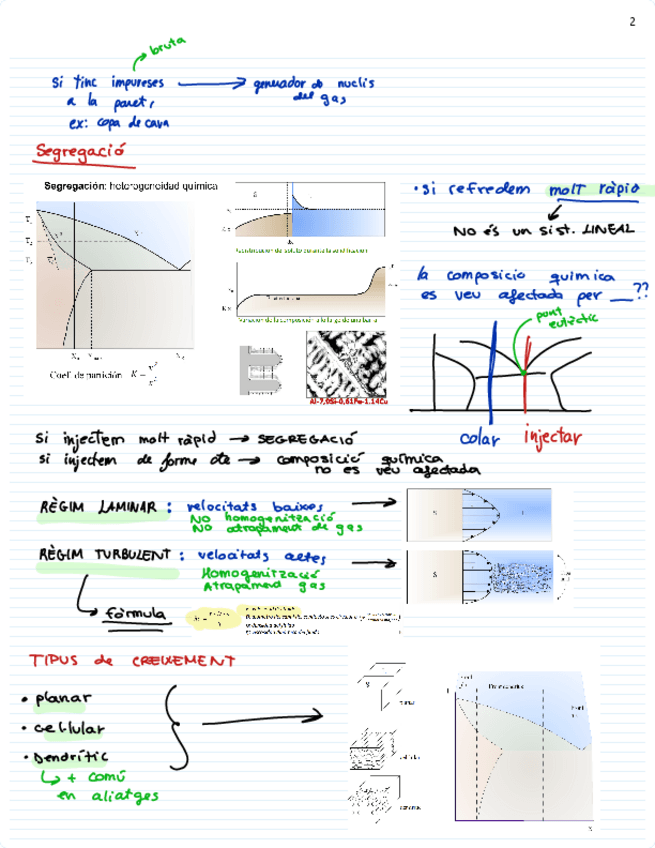 2
bruta
Si tinc impureses → generador de nuclis
a la paret, del gas
ex: copa de cava
Segregació
Segregación: heterogeneidad química
Coef. de partición K =
Al-7,0Si-0,61Fe-1,14Cu
· Si refredem molt ràpid
NO és un sist. LINEAL
la composició química
es veu afectada per __??
punt
eutèctic
colar injectar
Si injectem molt ràpid → SEGREGACIÓ
si injectem de forma cte → composició química
no es veu afectada
RÈGIM LAMINAR: velocitats baixes →
NO homogenització
NO atrapament de gas
RÈGIM TURBULENT: velocitats altes →
Homogenització
Atrapament gas
fórmula
TIPUS de CREIXEMENT
• planar
• cel·lular
• Dendrític
↳ + comú
en aliatges